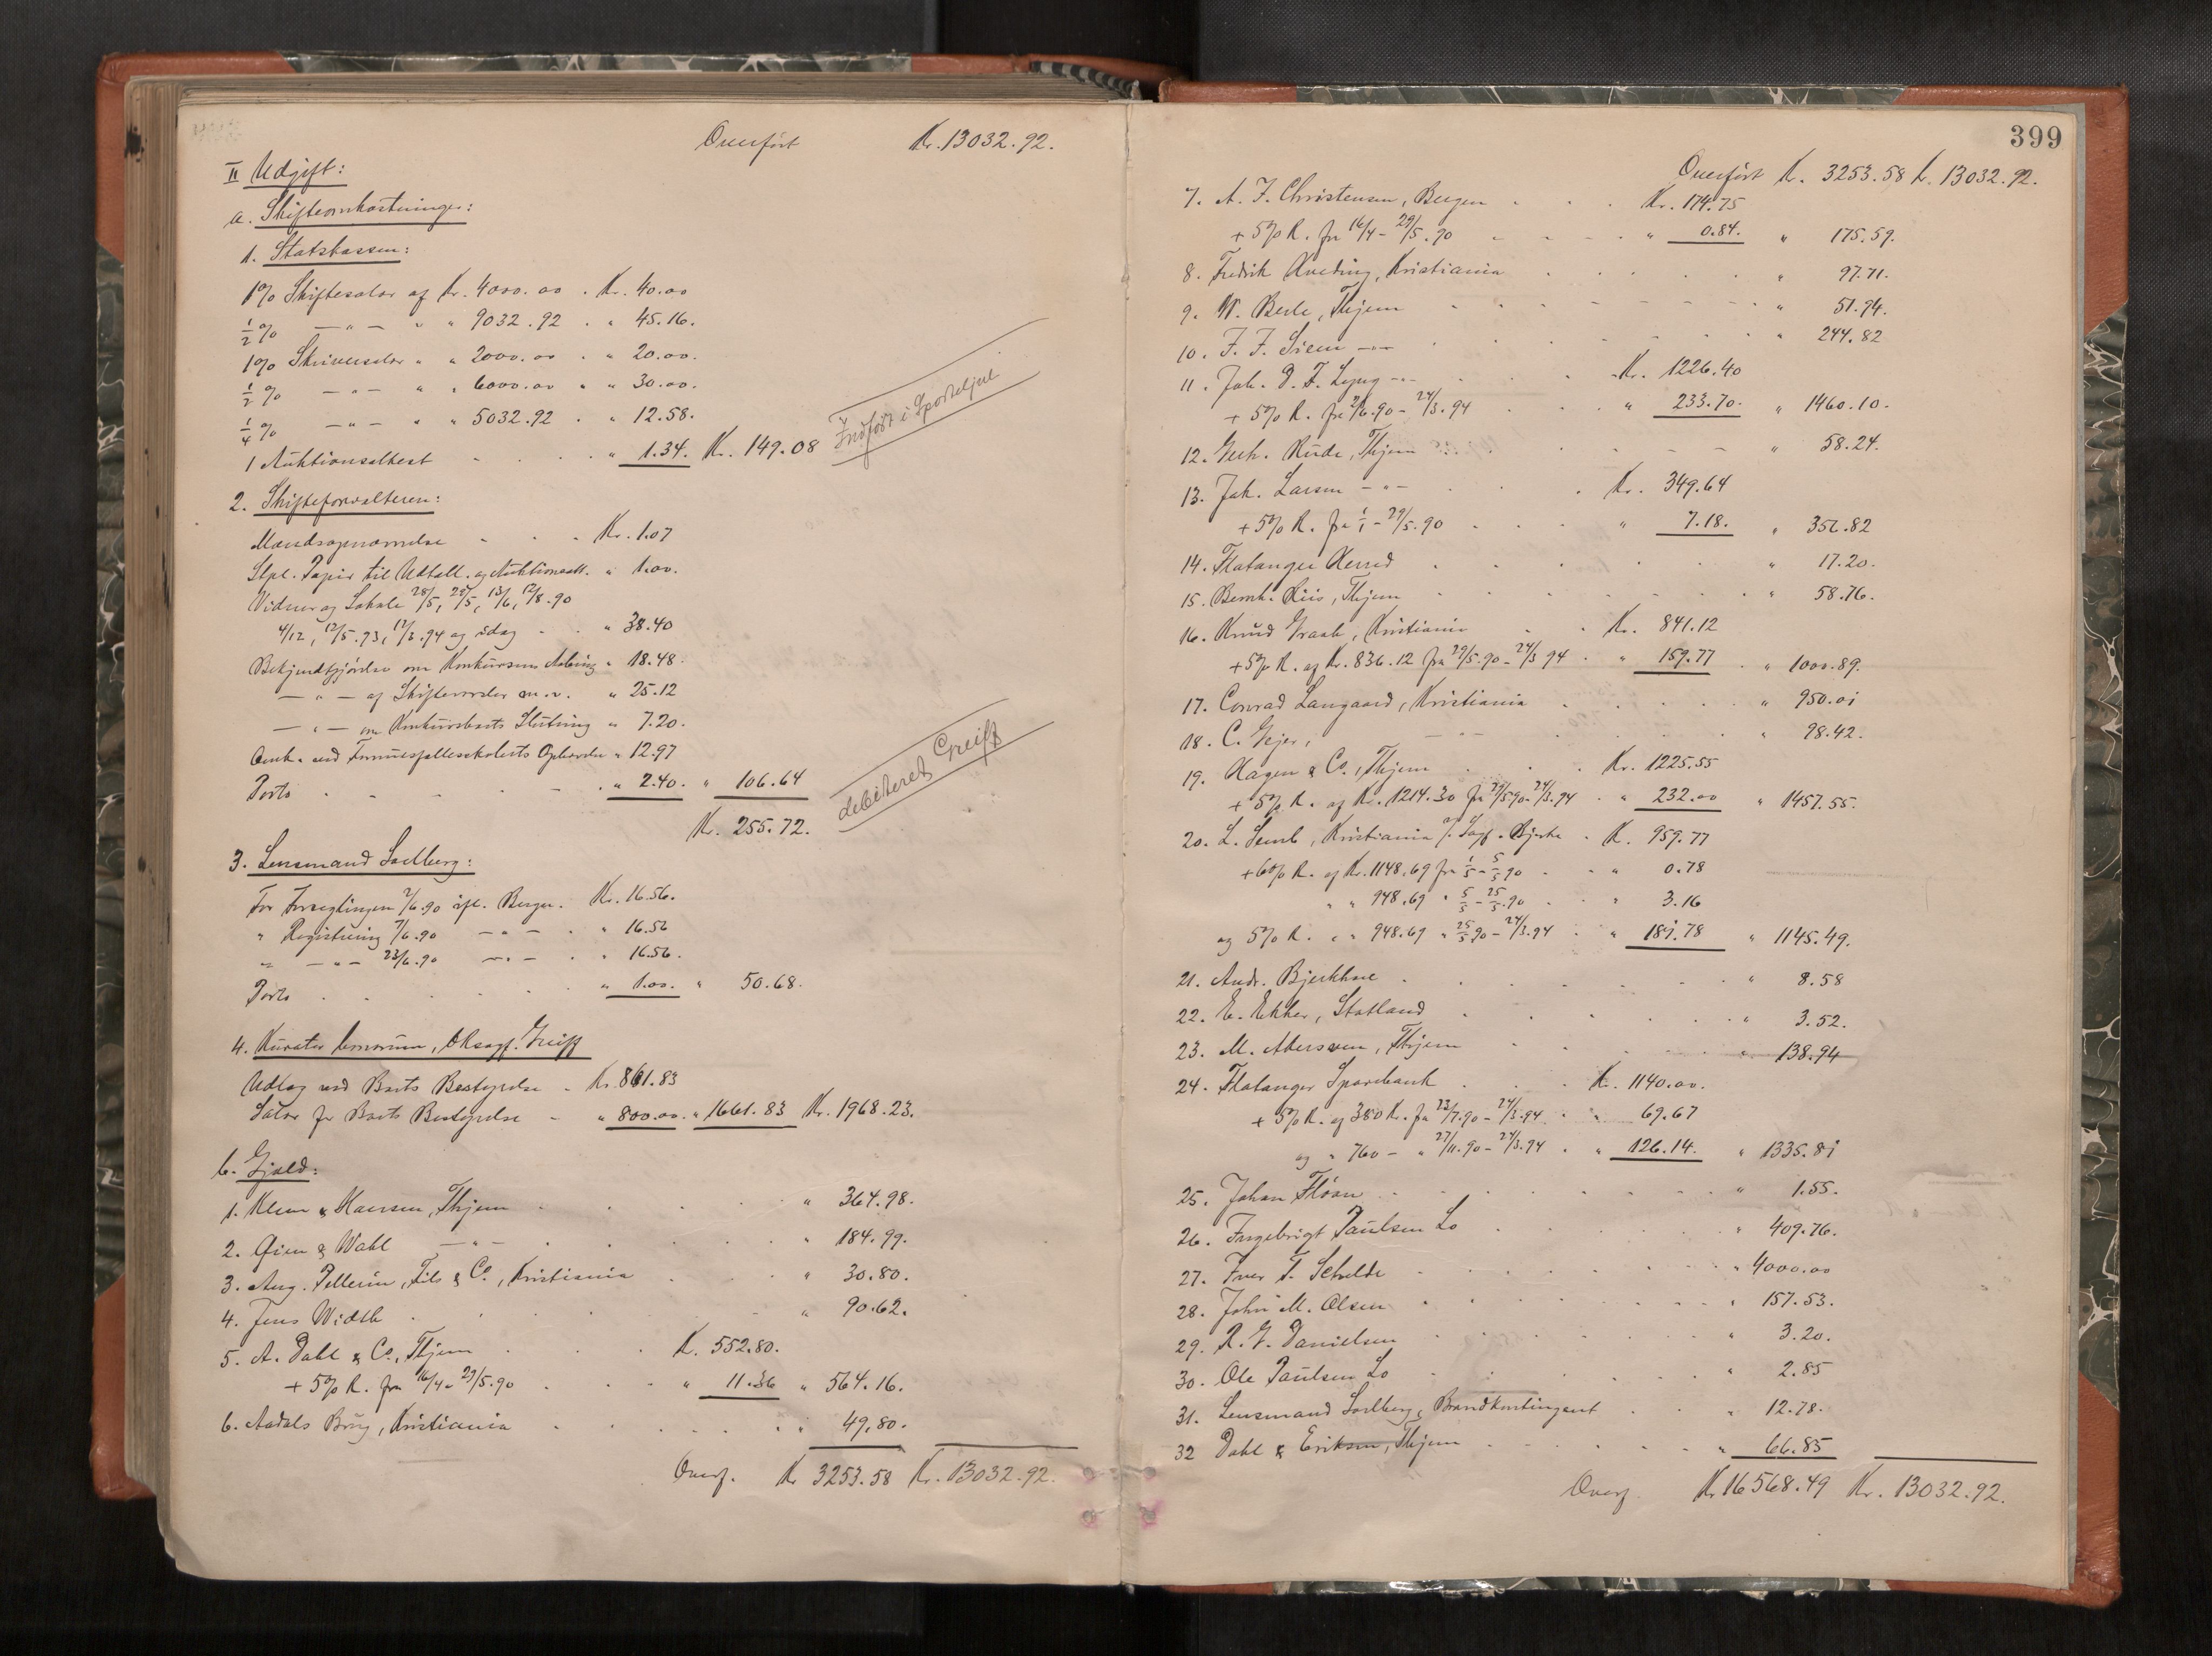 Overført Kr. 13032.92.
II Udgift:
a. Skifteomkostninger:
1. Statskassen:
1% Skiftesalær af Kr. 4000.00 . Kr. 40.00
1/2 % — " — " " 9032.92 . " 45.16.
1% Skriversalær " " 2000.00 . " 20.00.
1/2 % — " — " " 6000.00 " " 30.00.
1/4 % — " — " " 5032.92 . " 12.58.
1 Auktionsattest . . . " 1.34. Kr. 149.08
Indført i Sporteljnl
2. Skifteforvalteren:
Mandsopnævnelse . . . Kr. 1.07
Stpl. Papir til Udtall. og Auktionsatt. " 1.00.
Vidner og Lokale 28/5, 29/5, 13/6, 12/8.90
4/12, 12/5.93, 17/3.94 og idag . " 38.40
Bekjendtgjørelse om Konkursens Aabning " 18.48.
— " — af Skiftesamler m.v. " 25.12
— " — om Konkursboets Slutning " 7.20.
Omk. ved Formuesfællesskabets Ophævelse " 12.97
Porto . . . . . " 2.40. " 106.64
Kr. 255.72.
debiteret Greiff
3. Lensmand Sælberg:
For Forseglingen 2/6.90 ifl. Berger. Kr. 16.56.
" Registrering 7/6.90 — " — . " 16.56
" — " — 23/6.90 — " — . " 16.56.
Porto . . . . . " 1.00. " 50.68.
4. Kurator bonorum, ORsagf. Greiff
Udlæg ved Boets Bestyrelse . Kr. 861.83
Salær for Boets Bestyrelse . " 800.00. " 1661.83 Kr. 1968.23.
b. Gjæld:
1. Klem & Hansen, Thjem . . . " 364.98.
2. Øien & Wahl — " — . . . " 184.99.
3. Aug. Pellerin, Fils & Co., Kristiania . . . " 30.80.
4. Jens Width . . . . " 90.62.
5. A. Dahl & Co., Thjem . . Kr. 552.80.
+ 5% R. fra 16/4 - 29/5.90 . . " 11.36 " 564.16.
6. Aadals Brug, Kristiania . . . " 49.80.
Overf. Kr 3253.58 Kr. 13032.92.
399
Overført Kr. 3253.58 Kr. 13032.92.
7. A. F. Christensen, Bergen . . . Kr. 174.75
+ 5% R. fra 16/4 - 29/5.90 . . . " 0.84. " 175.59.
8. Fredrik Kveding, Kristiania . . . " 97.71.
9. W. Berle, Thjem . . . " 51.94.
10. F. F. Siem — " — . . . " 244.82
11. Joh. D. F. Lyng — " — . . Kr. 1226.40
+ 5% R. fra 2/6.90 - 24/3.94 . . " 233.70. " 1460.10.
12. Gerh. Rude, Thjem . . . " 58.24.
13. Joh. Larsen — " — . . Kr. 349.64
+ 5% R. fra 1/1 - 29/5.90 . . " 7.18. " 356.82
14. Flatanger Herred . . . " 17.20.
15. Bernh. Riis, Thjem . . . " 58.76.
16. Knud Graah, Kristiania . . Kr. 841.12
+ 5% R. af Kr. 836.12 fra 29/5.90 - 24/3 94 . " 159.77 . " 1000.89.
17. Conrad Langaard, Kristiania . . . " 950.01
18. C. Gejer, — " — . . . " 98.42.
19. Hagen & Co., Thjem . . Kr. 1225.55
+ 5% R. af Kr. 1214.30 fra 29/5.90 - 24/3.94 . " 232.00 " 1457.55.
20. L. Semb, Kristiania v/ Sagf. Bjerke . Kr. 959.77
+ 6% R. af Kr. 1148.69 fra 1/5 - 5/5 90 . . " 0.78
" " 948.69 " 5/5 - 25/5.90 . . " 3.16
og 5% R. " " 948.69 " 25/5 90 - 24/3.94 . " 181.78 " 1145.49.
21. Andr. Bjerkhoe . . . " 8.58
22. E. Ekker, Statland . . . " 3.52.
23. M. Abersven, Thjem . . . " 138.94
24. Flatanger Sparebank . . . Kr. 1140.00.
+ 5% R. af 380 Kr. fra 23/7.90 - 24/3.94 . " 69.67
og " 760 — " 27/11.90 - 24/3.94 . " 126.14. " 1335.81
25. Johan Fløan . . . " 1.55.
26. Ingebrigt Paulsen Lo . . . " 409.76.
27. Iver T. Setvelde . . . " 4000.00
28. John M. Olsen . . . " 157.53.
29. R. G. Danielsen . . . " 3.20.
30. Ole Paulsen Lo . . . " 2.85
31. Lensmand Sælberg, Brandkontingent . . " 12.78.
32 Dahl & Eriksen, Thjem . . . " 66.85
Overf. Kr. 16568.49 Kr. 13032.92.